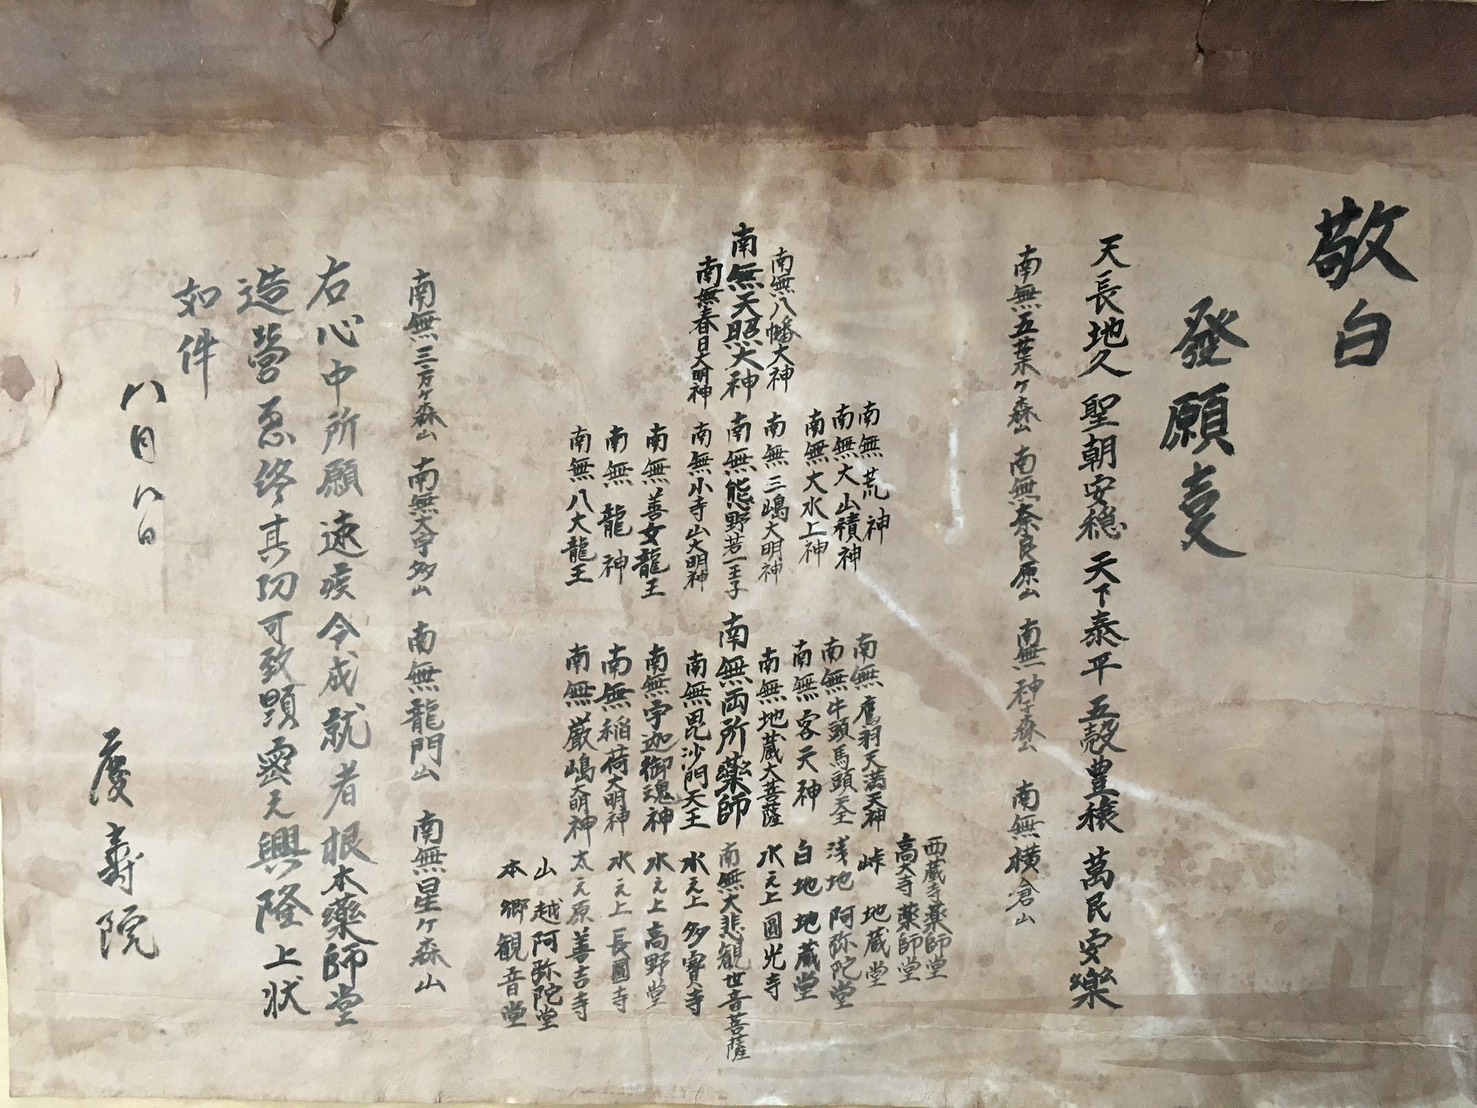 敬白
發願事
天長地久 聖朝安穏 天下泰平 五穀豊穣 萬民安樂
南無五葉ヶ森山 南無奈良原山 南無神森山 南無横倉山
南無八幡大神
南無天照大神
南無春日大明神
南無荒神
南無大山積神
南無大水上神
南無三嶋大明神
南無熊野若一王子
南無小寺山大明神
南無善女龍王
南無龍神
南無八大龍王
南無鷹羽天満天神
南無牛頭馬頭天全
南無客天神
南無地蔵大菩薩
南無両所藥師
南無毘沙門天王
南無宇迦御魂神
南無稲荷大明神
南無厳嶋大明神
西蔵寺薬師堂
高大寺薬師堂
峠地蔵堂
浅地阿弥陀堂
白地地蔵堂
水之上圓光寺
南無大悲観世音菩薩
水之上多寶寺
水之上高野堂
水之上長圓寺
太之原善吉寺
山越阿弥陀堂
本郷観音堂
南無三方ヶ森山 南無大多山 南無龍門山 南無星ヶ森山
右心中所願速疾令成就者根本藥師堂
造營急終其功可致顕密之興隆上状
如件
八月八日
慶壽院